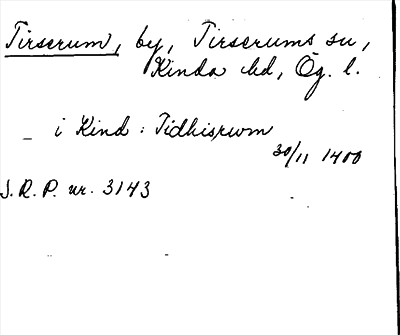 Tirserum, by, Tirserums sn,
Kinda hd, Ög. l.
_ i Kind : Tidhisrwm
30/11 1400
S.R.P. nr. 3143